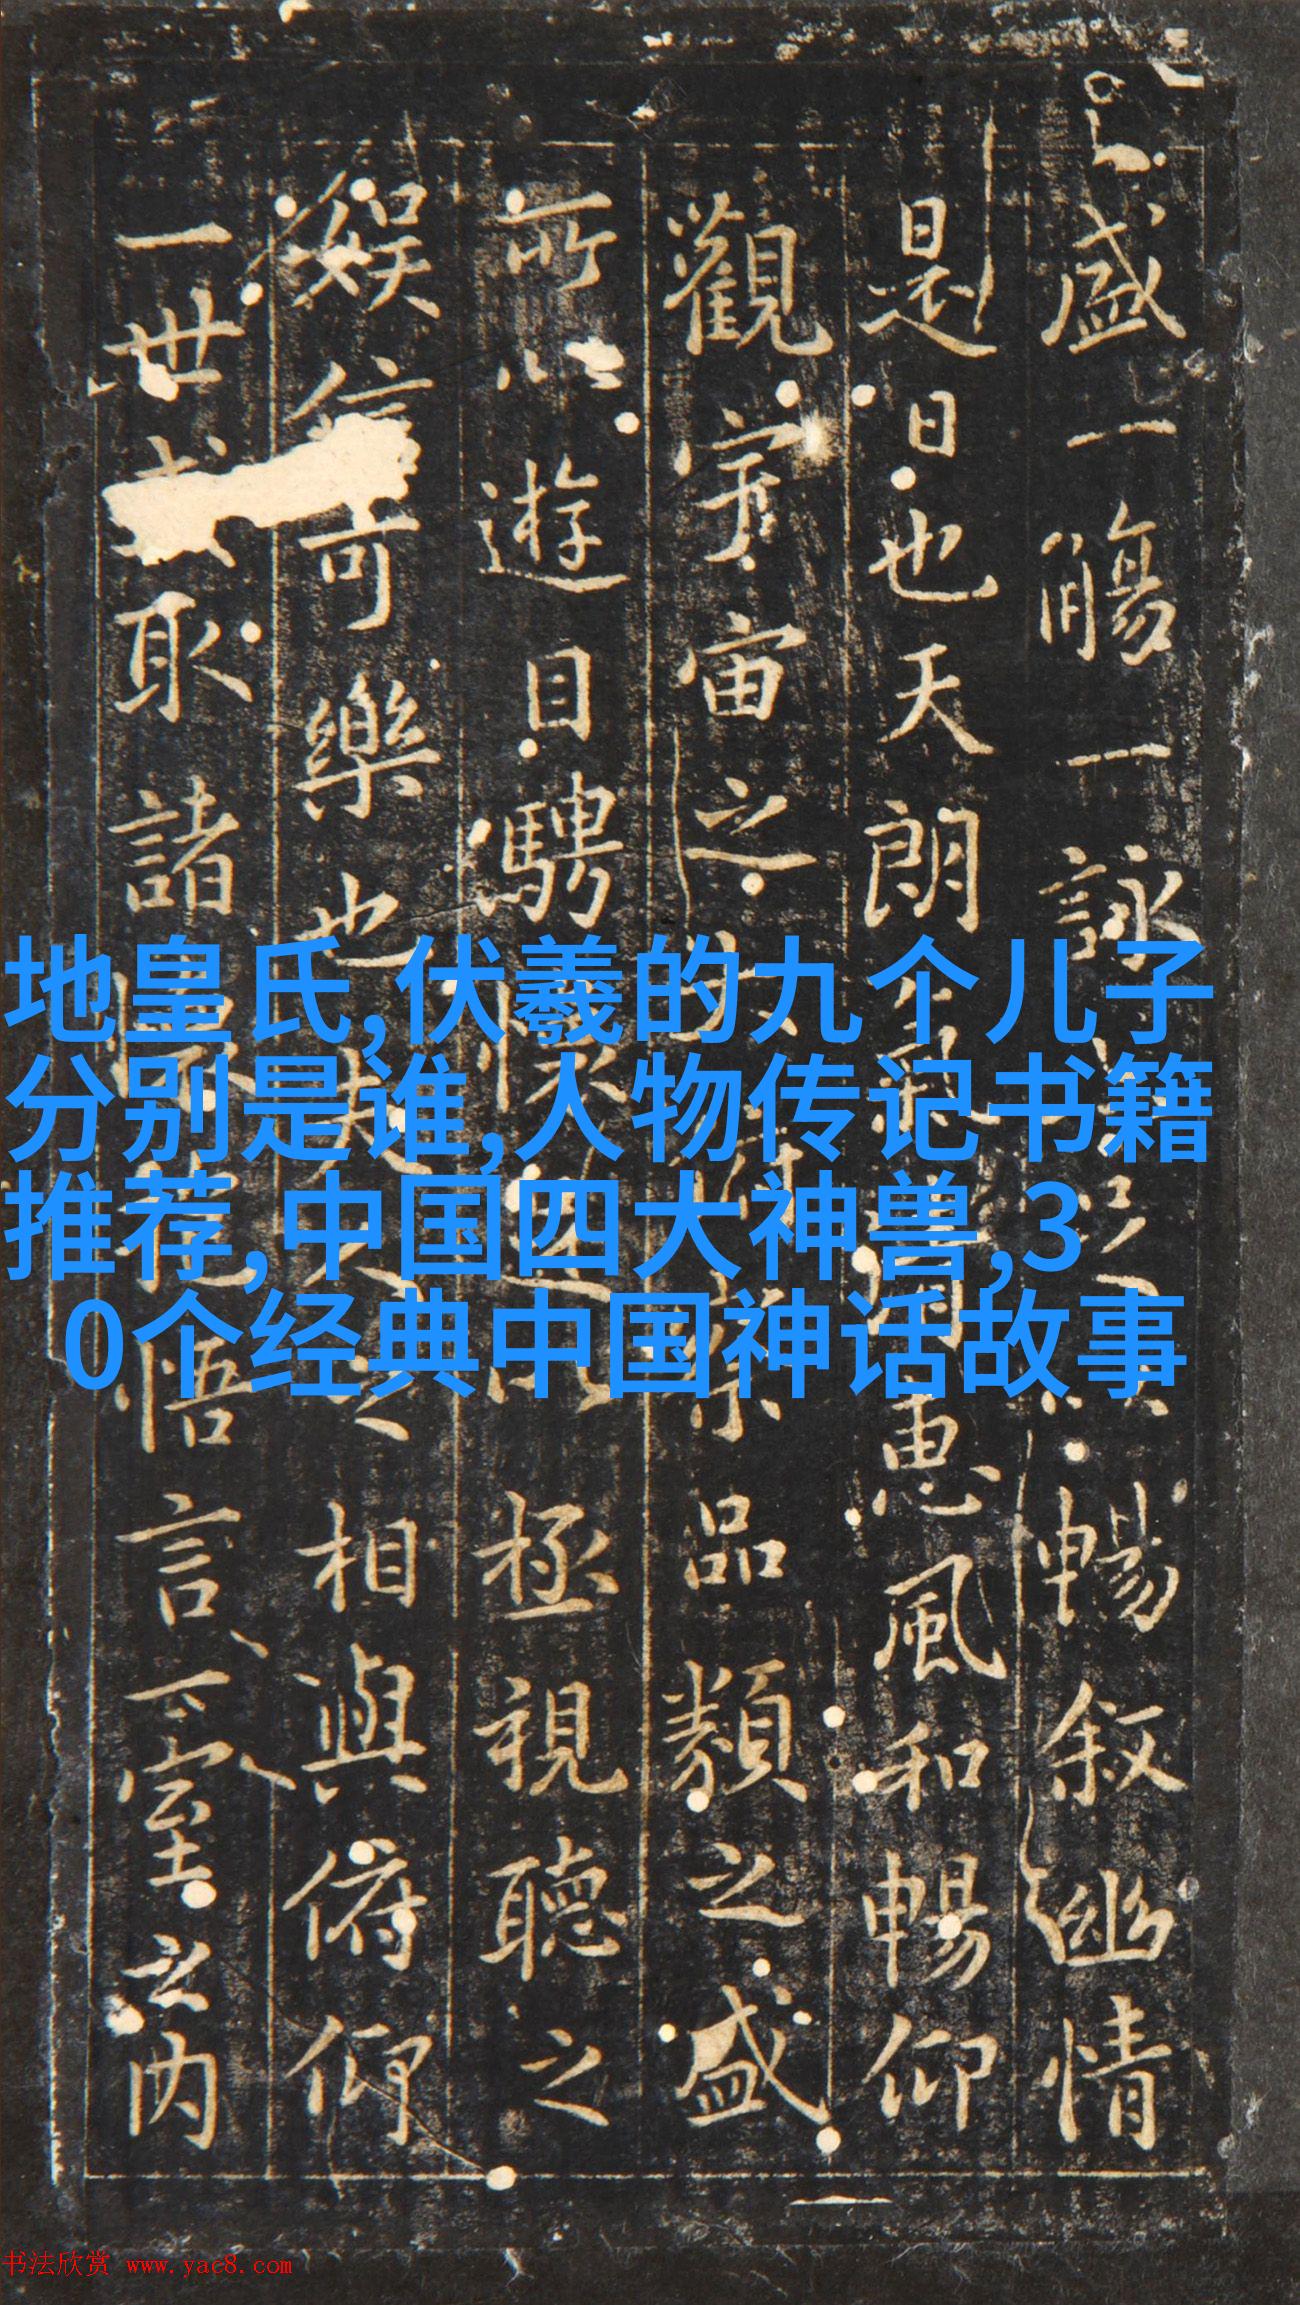 盛一觴一詠暢叙幽情
是日也天朗惠風和暢仰
觀宇宙之品類之盛
所以遊目騁懷極視聽之
娱信可樂也夫之相與俯仰
一世取諸悟言一室之内
地皇氏,伏羲的九个儿子
分别是谁,人物传记书籍
推荐,中国四大神兽,3
0个经典中国神话故事
书法欣赏 www.yac8.com